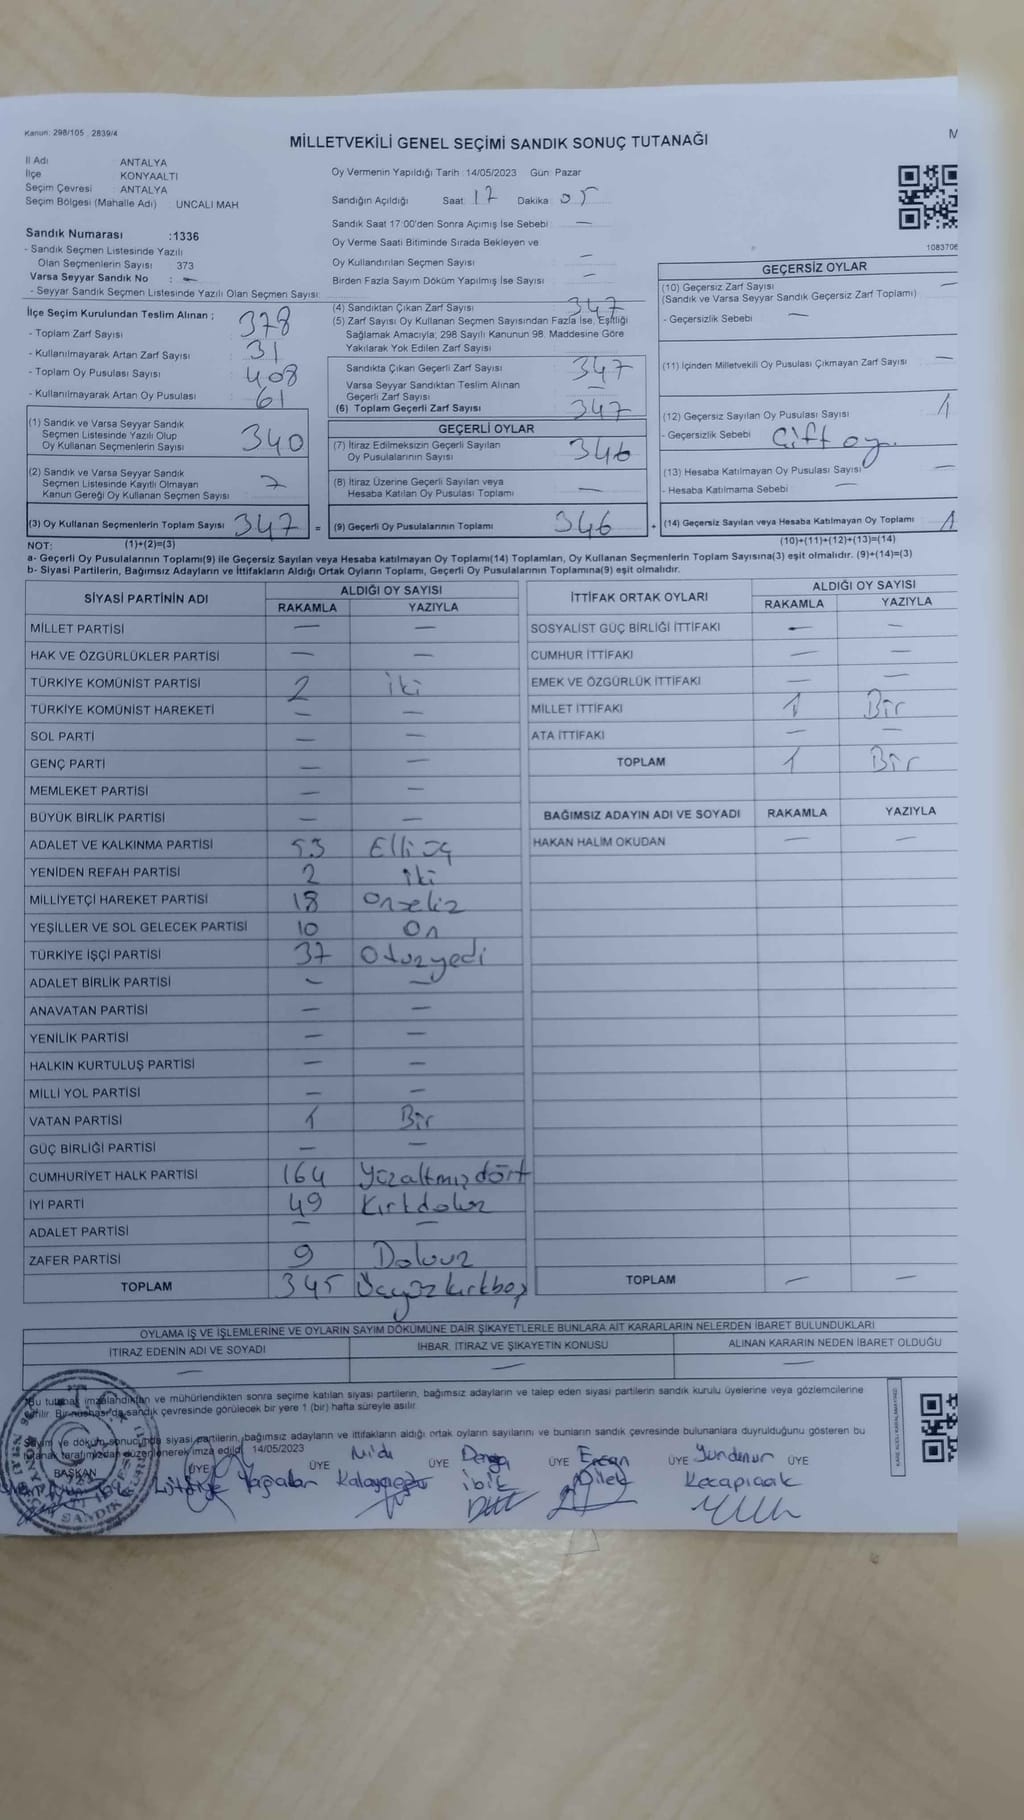 Kanun: 298/105 _ 2839/4
MİLLETVEKİLİ GENEL SEÇİMİ SANDIK SONUÇ TUTANAĞI
İl Adı ANTALYA
İlçe : KONYAALTI
Seçim Çevresi : ANTALYA
Seçim Bölgesi (Mahalle Adı) : UNCALI MAH
Sandık Numarası :1336
- Sandık Seçmen Listesinde Yazılı
Olan Seçmenlerin Sayısı 373
Varsa Seyyar Sandık No : —
- Seyyar Sandık Seçmen Listesinde Yazılı Olan Seçmen Sayısı:
Oy Vermenin Yapıldığı Tarih :14/05/2023 Gün: Pazar
Sandığın Açıldığı Saat: 17 Dakika: 05
Sandık Saat 17:00'den Sonra Açımış İse Sebebi : —
Oy Verme Saati Bitiminde Sırada Bekleyen ve
Oy Kullandırılan Seçmen Sayısı —
Birden Fazla Sayım Döküm Yapılmış İse Sayısı —
1083706
İlçe Seçim Kurulundan Teslim Alınan ;
- Toplam Zarf Sayısı : 378
- Kullanılmayarak Artan Zarf Sayısı : 31
- Toplam Oy Pusulası Sayısı : 408
- Kullanılmayarak Artan Oy Pusulası : 61
(1) Sandık ve Varsa Seyyar Sandık
Seçmen Listesinde Yazılı Olup
Oy Kullanan Seçmenlerin Sayısı 340
(2) Sandık ve Varsa Seyyar Sandık
Seçmen Listesinde Kayıtlı Olmayan
Kanun Gereği Oy Kullanan Seçmen Sayısı 7
(3) Oy Kullanan Seçmenlerin Toplam Sayısı 347 =
(4) Sandıktan Çıkan Zarf Sayısı 347
(5) Zarf Sayısı Oy Kullanan Seçmen Sayısından Fazla İse, Eşitliği
Sağlamak Amacıyla; 298 Sayılı Kanunun 98. Maddesine Göre
Yakılarak Yok Edilen Zarf Sayısı
Sandıkta Çıkan Geçerli Zarf Sayısı 347
Varsa Seyyar Sandıktan Teslim Alınan
Geçerli Zarf Sayısı —
(6) Toplam Geçerli Zarf Sayısı 347
GEÇERLİ OYLAR
(7) İtiraz Edilmeksizin Geçerli Sayılan
Oy Pusulalarının Sayısı 346
(8) İtiraz Üzerine Geçerli Sayılan veya
Hesaba Katılan Oy Pusulası Toplamı —
(9) Geçerli Oy Pusulalarının Toplamı 346 +
GEÇERSİZ OYLAR
(10) Geçersiz Zarf Sayısı —
(Sandık ve Varsa Seyyar Sandık Geçersiz Zarf Toplamı)
- Geçersizlik Sebebi : —
(11) İçinden Milletvekili Oy Pusulası Çıkmayan Zarf Sayısı —
(12) Geçersiz Sayılan Oy Pusulası Sayısı 1
- Geçersizlik Sebebi : Çift oy.
(13) Hesaba Katılmayan Oy Pusulası Sayısı —
- Hesaba Katılmama Sebebi : —
(14) Geçersiz Sayılan veya Hesaba Katılmayan Oy Toplamı 1
(10)+(11)+(12)+(13)=(14)
NOT: (1)+(2)=(3)
a- Geçerli Oy Pusulalarının Toplamı(9) ile Geçersiz Sayılan veya Hesaba katılmayan Oy Toplamı(14) Toplamları, Oy Kullanan Seçmenlerin Toplam Sayısına(3) eşit olmalıdır. (9)+(14)=(3)
b- Siyasi Partilerin, Bağımsız Adayların ve İttifakların Aldığı Ortak Oyların Toplamı, Geçerli Oy Pusulalarının Toplamına(9) eşit olmalıdır.
SİYASİ PARTİNİN ADI
ALDIĞI OY SAYISI
RAKAMLA YAZIYLA
MİLLET PARTİSİ — —
HAK VE ÖZGÜRLÜKLER PARTİSİ — —
TÜRKİYE KOMÜNİST PARTİSİ 2 iki
TÜRKİYE KOMÜNİST HAREKETİ — —
SOL PARTİ — —
GENÇ PARTİ — —
MEMLEKET PARTİSİ — —
BÜYÜK BİRLİK PARTİSİ — —
ADALET VE KALKINMA PARTİSİ 53 Elli üç
YENİDEN REFAH PARTİSİ 2 iki
MİLLİYETÇİ HAREKET PARTİSİ 18 Onsekiz
YEŞİLLER VE SOL GELECEK PARTİSİ 10 On
TÜRKİYE İŞÇİ PARTİSİ 37 Otuzyedi
ADALET BİRLİK PARTİSİ — —
ANAVATAN PARTİSİ — —
YENİLİK PARTİSİ — —
HALKIN KURTULUŞ PARTİSİ — —
MİLLİ YOL PARTİSİ — —
VATAN PARTİSİ 1 Bir
GÜÇ BİRLİĞİ PARTİSİ — —
CUMHURİYET HALK PARTİSİ 164 Yüzaltmışdört
İYİ PARTİ 49 Kırkdokuz
ADALET PARTİSİ — —
ZAFER PARTİSİ 9 Dokuz
TOPLAM 345 Üçyüzkırkbeş
İTTİFAK ORTAK OYLARI
ALDIĞI OY SAYISI
RAKAMLA YAZIYLA
SOSYALİST GÜÇ BİRLİĞİ İTTİFAKI — —
CUMHUR İTTİFAKI — —
EMEK VE ÖZGÜRLÜK İTTİFAKI — —
MİLLET İTTİFAKI 1 Bir
ATA İTTİFAKI — —
TOPLAM 1 Bir
BAĞIMSIZ ADAYIN ADI VE SOYADI RAKAMLA YAZIYLA
HAKAN HALİM OKUDAN — —
TOPLAM — —
OYLAMA İŞ VE İŞLEMLERİNE VE OYLARIN SAYIM DÖKÜMÜNE DAİR ŞİKAYETLERLE BUNLARA AİT KARARLARIN NELERDEN İBARET BULUNDUKLARI
İTİRAZ EDENİN ADI VE SOYADI İHBAR, İTİRAZ VE ŞİKAYETİN KONUSU ALINAN KARARIN NEDEN İBARET OLDUĞU
— — —
Bu tutanak imzalandıktan ve mühürlendikten sonra seçime katılan siyasi partilerin, bağımsız adayların ve talep eden siyasi partilerin sandık kurulu üyelerine veya gözlemcilerine
verilir. Bir nüshası da sandık çevresinde görülecek bir yere 1 (bir) hafta süreyle asılır.
Sayım ve döküm sonucunda siyasi partilerin, bağımsız adayların ve ittifakların aldığı ortak oyların sayılarını ve bunların sandık çevresinde bulunanlara duyrulduğunu gösteren bu
tutanak tarafımızdan düzenlenerek imza edildi. 14/05/2023
BAŞKAN ÜYE ÜYE ÜYE ÜYE ÜYE ÜYE
Yapalar
Nida
Derya
ibik
Ercan
Dilek
Kocapıçak
SANDIK